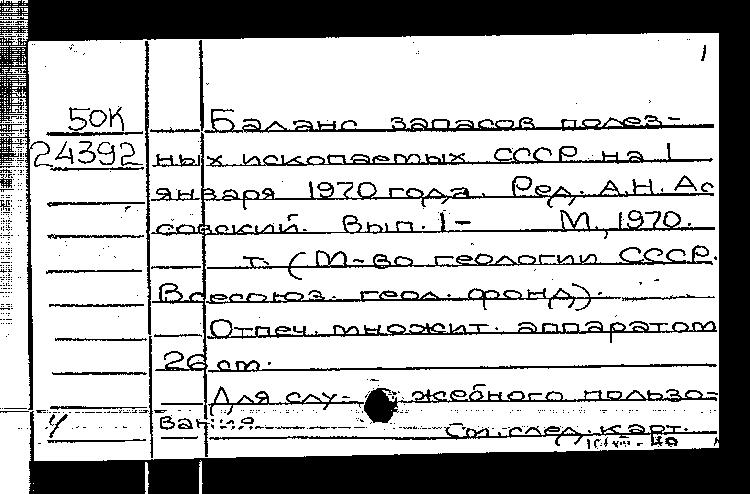 1
50К Баланс запасов полез-
24392 ных ископаемых СССР на 1
января 1970 года. Ред. А.Н. Ас
совский. Вып. 1- М., 1970.
т. (М-во геологии СССР.
Всесоюз. геол. фонд).
Отпеч. множит. аппаратом
26 см.
Для слу- жебного пользо-
вания
См. след. карт.